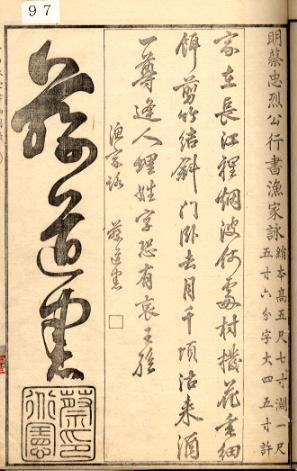 97
明蔡忠烈公行書漁家詠
絹本高五尺七寸濶尺
五寸六分字大四五寸許
家在長江裡烟波何處村花垂細
餌剪竹結斜门臥去月千頃沽来酒
一尊逢人埋姓字恐有哀王孫
漁家詠 蔡道憲
蔡道憲
蔡印道憲